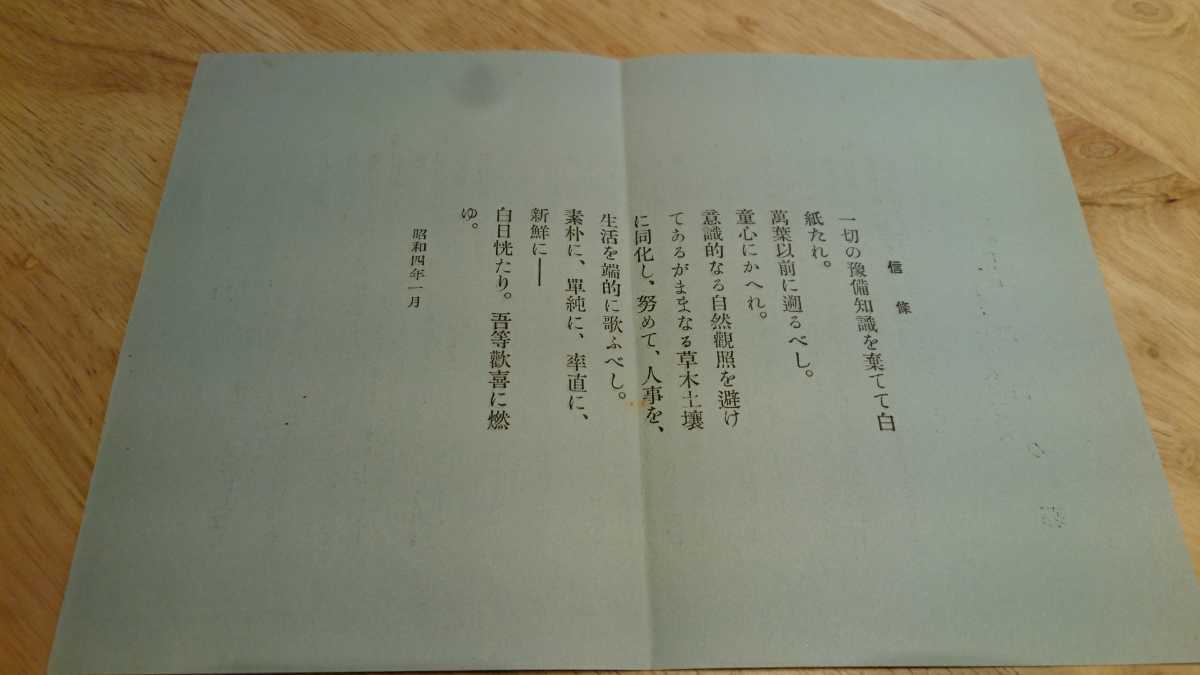 信條
一切の豫備知識を棄てて白
紙たれ。
萬葉以前に遡るべし。
童心にかへれ。
意識的なる自然觀照を避け
てあるがままなる草木土壤
に同化し、努めて、人事を、
生活を端的に歌ふべし。
素朴に、單純に、率直に、
新鮮に――
白日恍たり。吾等歡喜に燃
ゆ。
昭和四年一月